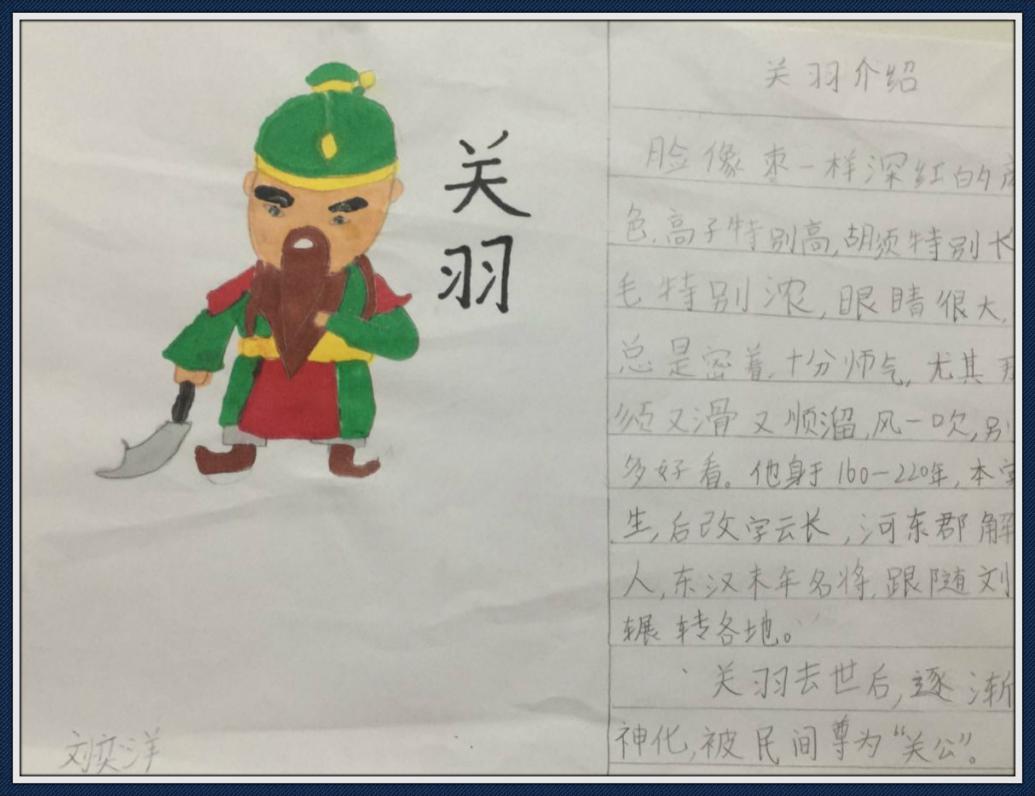 关
羽
刘奕洋
关羽介绍
脸像枣一样深红的
色,高子特别高,胡须特别长
毛特别浓,眼睛很大,
总是密着,十分师气,尤其
须又滑又顺溜,风一吹,别
多好看。他身于160—220年,本字
生,后改字云长,河东郡解
人,东汉末年名将,跟随刘
辗转各地。
关羽去世后,逐渐
神化,被民间尊为“关公”。